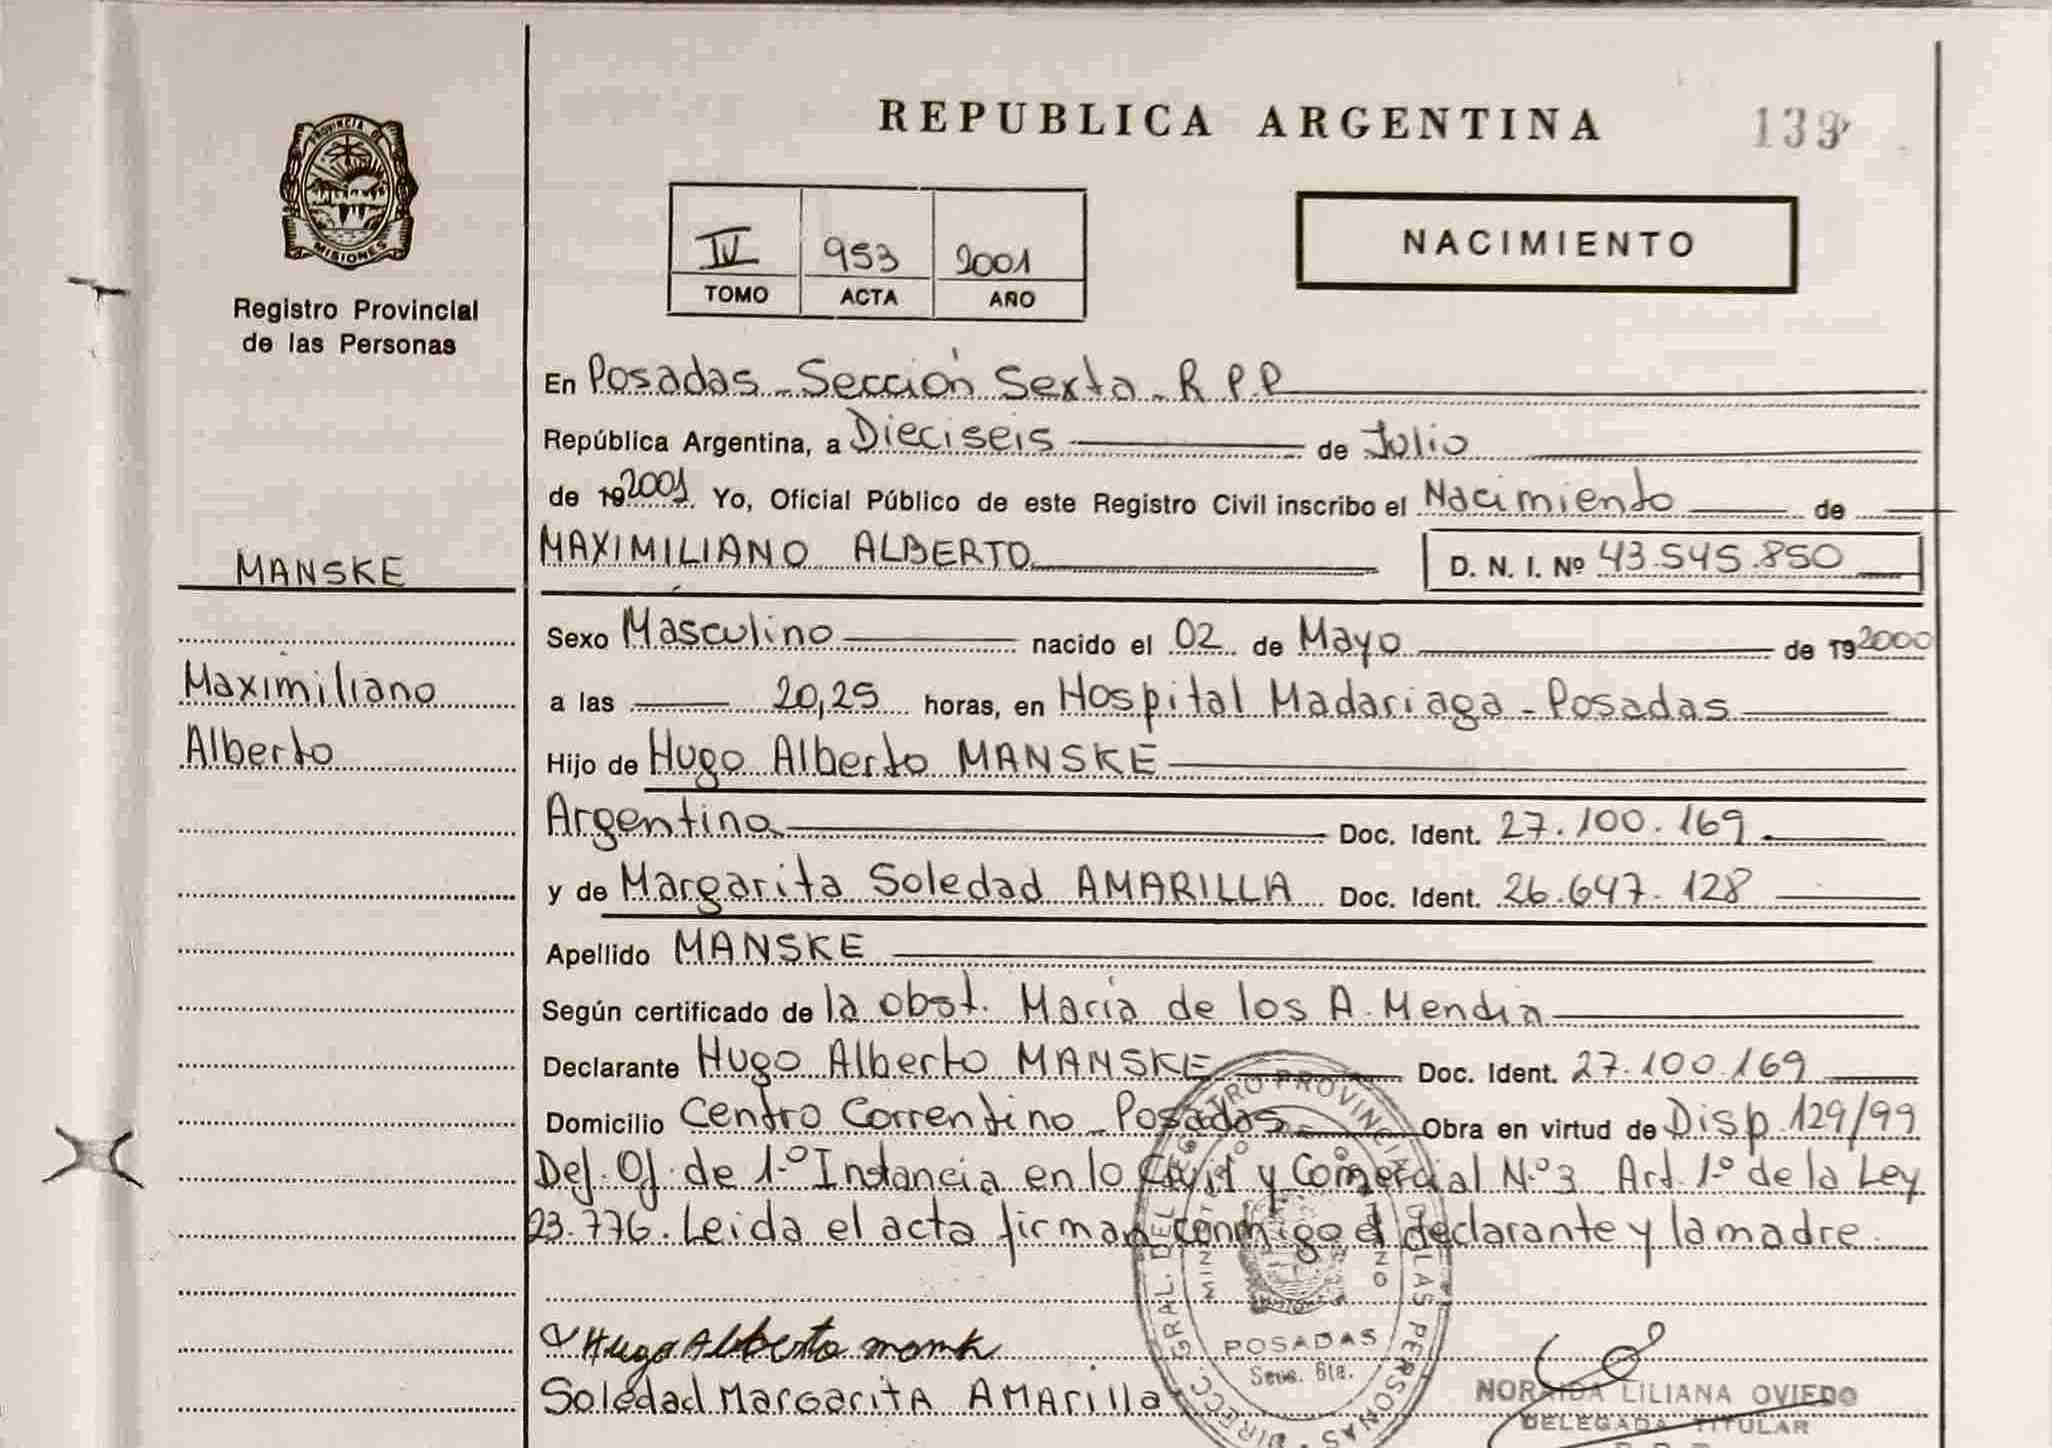 PROVINCIA DE
MISIONES
Registro Provincial
de las Personas
REPUBLICA ARGENTINA 139
IV 953 2001
TOMO ACTA AÑO
NACIMIENTO
En Posadas - Sección Sexta - R P.P
República Argentina, a Dieciseis de Julio
de 192001 Yo, Oficial Público de este Registro Civil inscribo el Nacimiento de
MANSKE
MAXIMILIANO ALBERTO D. N. I. Nº 43.545.850
Sexo Masculino nacido el 02 de Mayo de 192000
Maximiliano
a las 20,25 horas, en Hospital Madariaga - Posadas
Alberto
Hijo de Hugo Alberto MANSKE
Argentina Doc. Ident. 27.100.169
y de Margarita Soledad AMARILLA Doc. Ident. 26.647.128
Apellido MANSKE
Según certificado de la obst. María de los A. Mendia
Declarante Hugo Alberto MANSKE Doc. Ident. 27.100.169
Domicilio Centro Correntino - Posadas Obra en virtud de Disp 129/99
Def. Of. de 1.º Instancia en lo Civil y Comercial N.º 3 Art. 1.º de la Ley
23.776. Leida el acta firman conmigo el declarante y la madre
Hugo Alberto
Soledad Margarita AMArilla
POSADAS
Secc. 6ta.
NORAIDA LILIANA OVIEDO
DELEGADA TITULAR